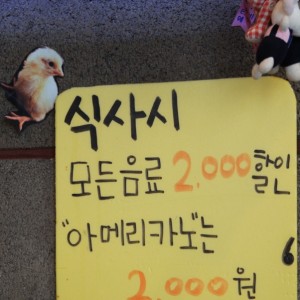 식사시
모든음료 2,000할인
"아메리카노"는
2,000원